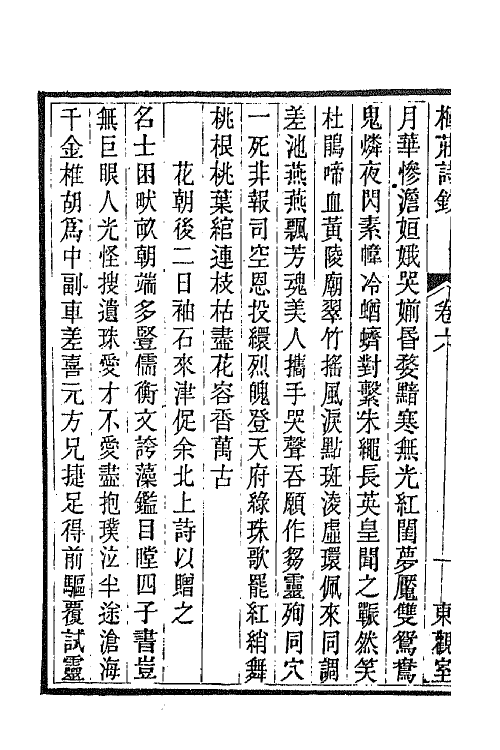 莊詩錄 卷六 一 東觀室
月華慘澹姮娥哭婤昏婺黯寒無光紅閨夢魘雙鴛鴦
鬼燐夜閃素幃冷蝤蠐對繫朱繩長英皇聞之冁然笑
杜鵑啼血黃陵廟翠竹搖風淚點斑淩虛環佩來同調
差池燕燕飄芳魂美人攜手哭聲吞願作芻靈殉同穴
一死非報司空恩投繯烈魄登天府綠珠歌罷紅綃舞
桃根桃葉綰連枝枯盡花容香萬古
花朝後二日袖石來津促余北上詩以贈之
名士困畎畝朝端多豎儒衡文誇藻鑑目瞠四子書豈
無巨眼人光怪搜遺珠愛才不愛盡抱璞泣半途滄海
千金椎胡爲中副車差喜元方兄捷足得前驅覆試靈